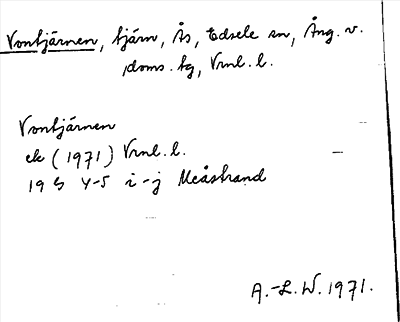 Vontjärnen, tjärn, Ås, Edsele sn, Ång. v.
doms. tg, Vrnl. l.
Vontjärnen
ek (1971) Vrnl. l.
19 G 4-5 i-j Meåstrand
A.-L. W. 1971.